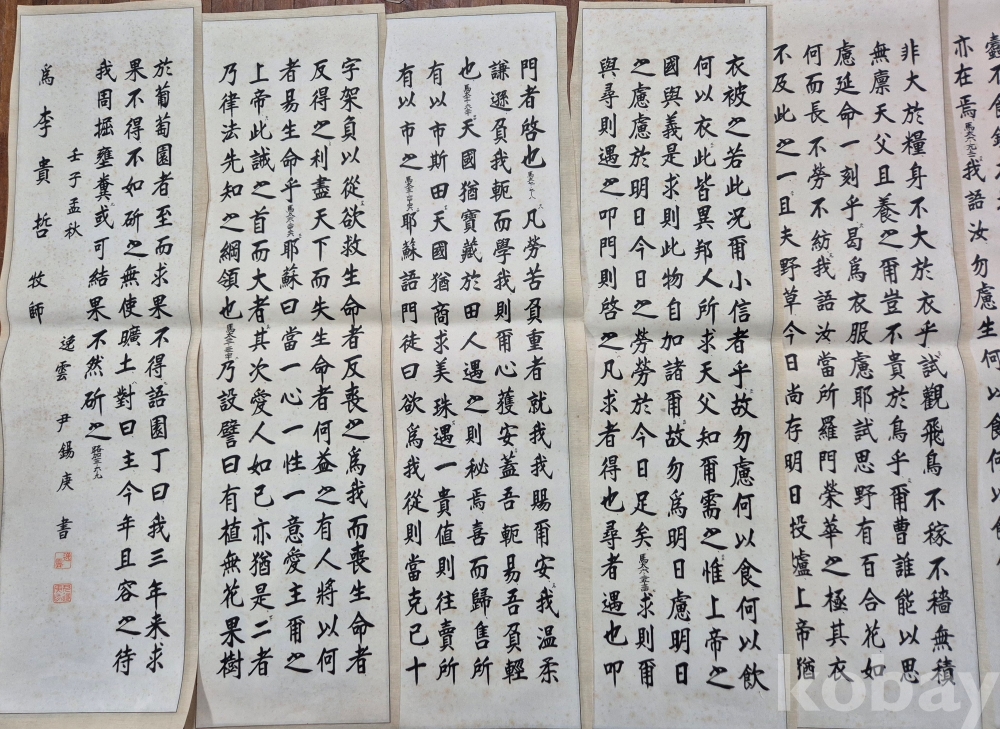 亦在焉我語汝勿慮生何以食何以
非大於糧身不大於衣乎試觀飛鳥不稼不穡無積
無廩天父且養之爾豈不貴於鳥乎爾曹誰能以思
慮延命一刻乎曷爲衣服慮耶試思野有百合花如
何而長不勞不紡我語汝當所羅門榮華之極其衣
不及此之一且夫野草今日尚存明日投爐上帝猶
衣被之若此况爾小信者乎故勿慮何以食何以飲
何以衣此皆異邦人所求天父知爾需之惟上帝之
國與義是求則此物自加諸爾故勿爲明日慮明日
之慮慮於明日今日之勞勞於今日足矣求則爾
與尋則遇之叩門則啓之凡求者得也尋者遇也叩
門者啓也凡勞苦負重者就我我賜爾安我温柔
謙遜負我軛而學我則爾心獲安蓋吾軛易吾負輕
也天國猶寶藏於田人遇之則秘焉喜而歸售所
有以市斯田天國猶商求美珠遇一貴值則往賣所
有以市之耶蘇語門徒曰欲爲我從則當克己十
字架負以從欲救生命者反喪之爲我而喪生命者
反得之利盡天下而失生命者何益之有人將以何
者易生命乎耶蘇曰當一心一性一意愛主爾之
上帝此誡之首而大者其次愛人如己亦猶是二者
乃律法先知之綱領也乃設譬曰有植無花果樹
於葡萄園者至而求果不得語園丁曰我三年来求
果不得不如斫之無使曠土對曰主今年且容之待
我周掘壅糞或可結果不然斫之
壬子孟秋 逆雲 尹錫庚 書
爲李貴哲 牧師
kobay